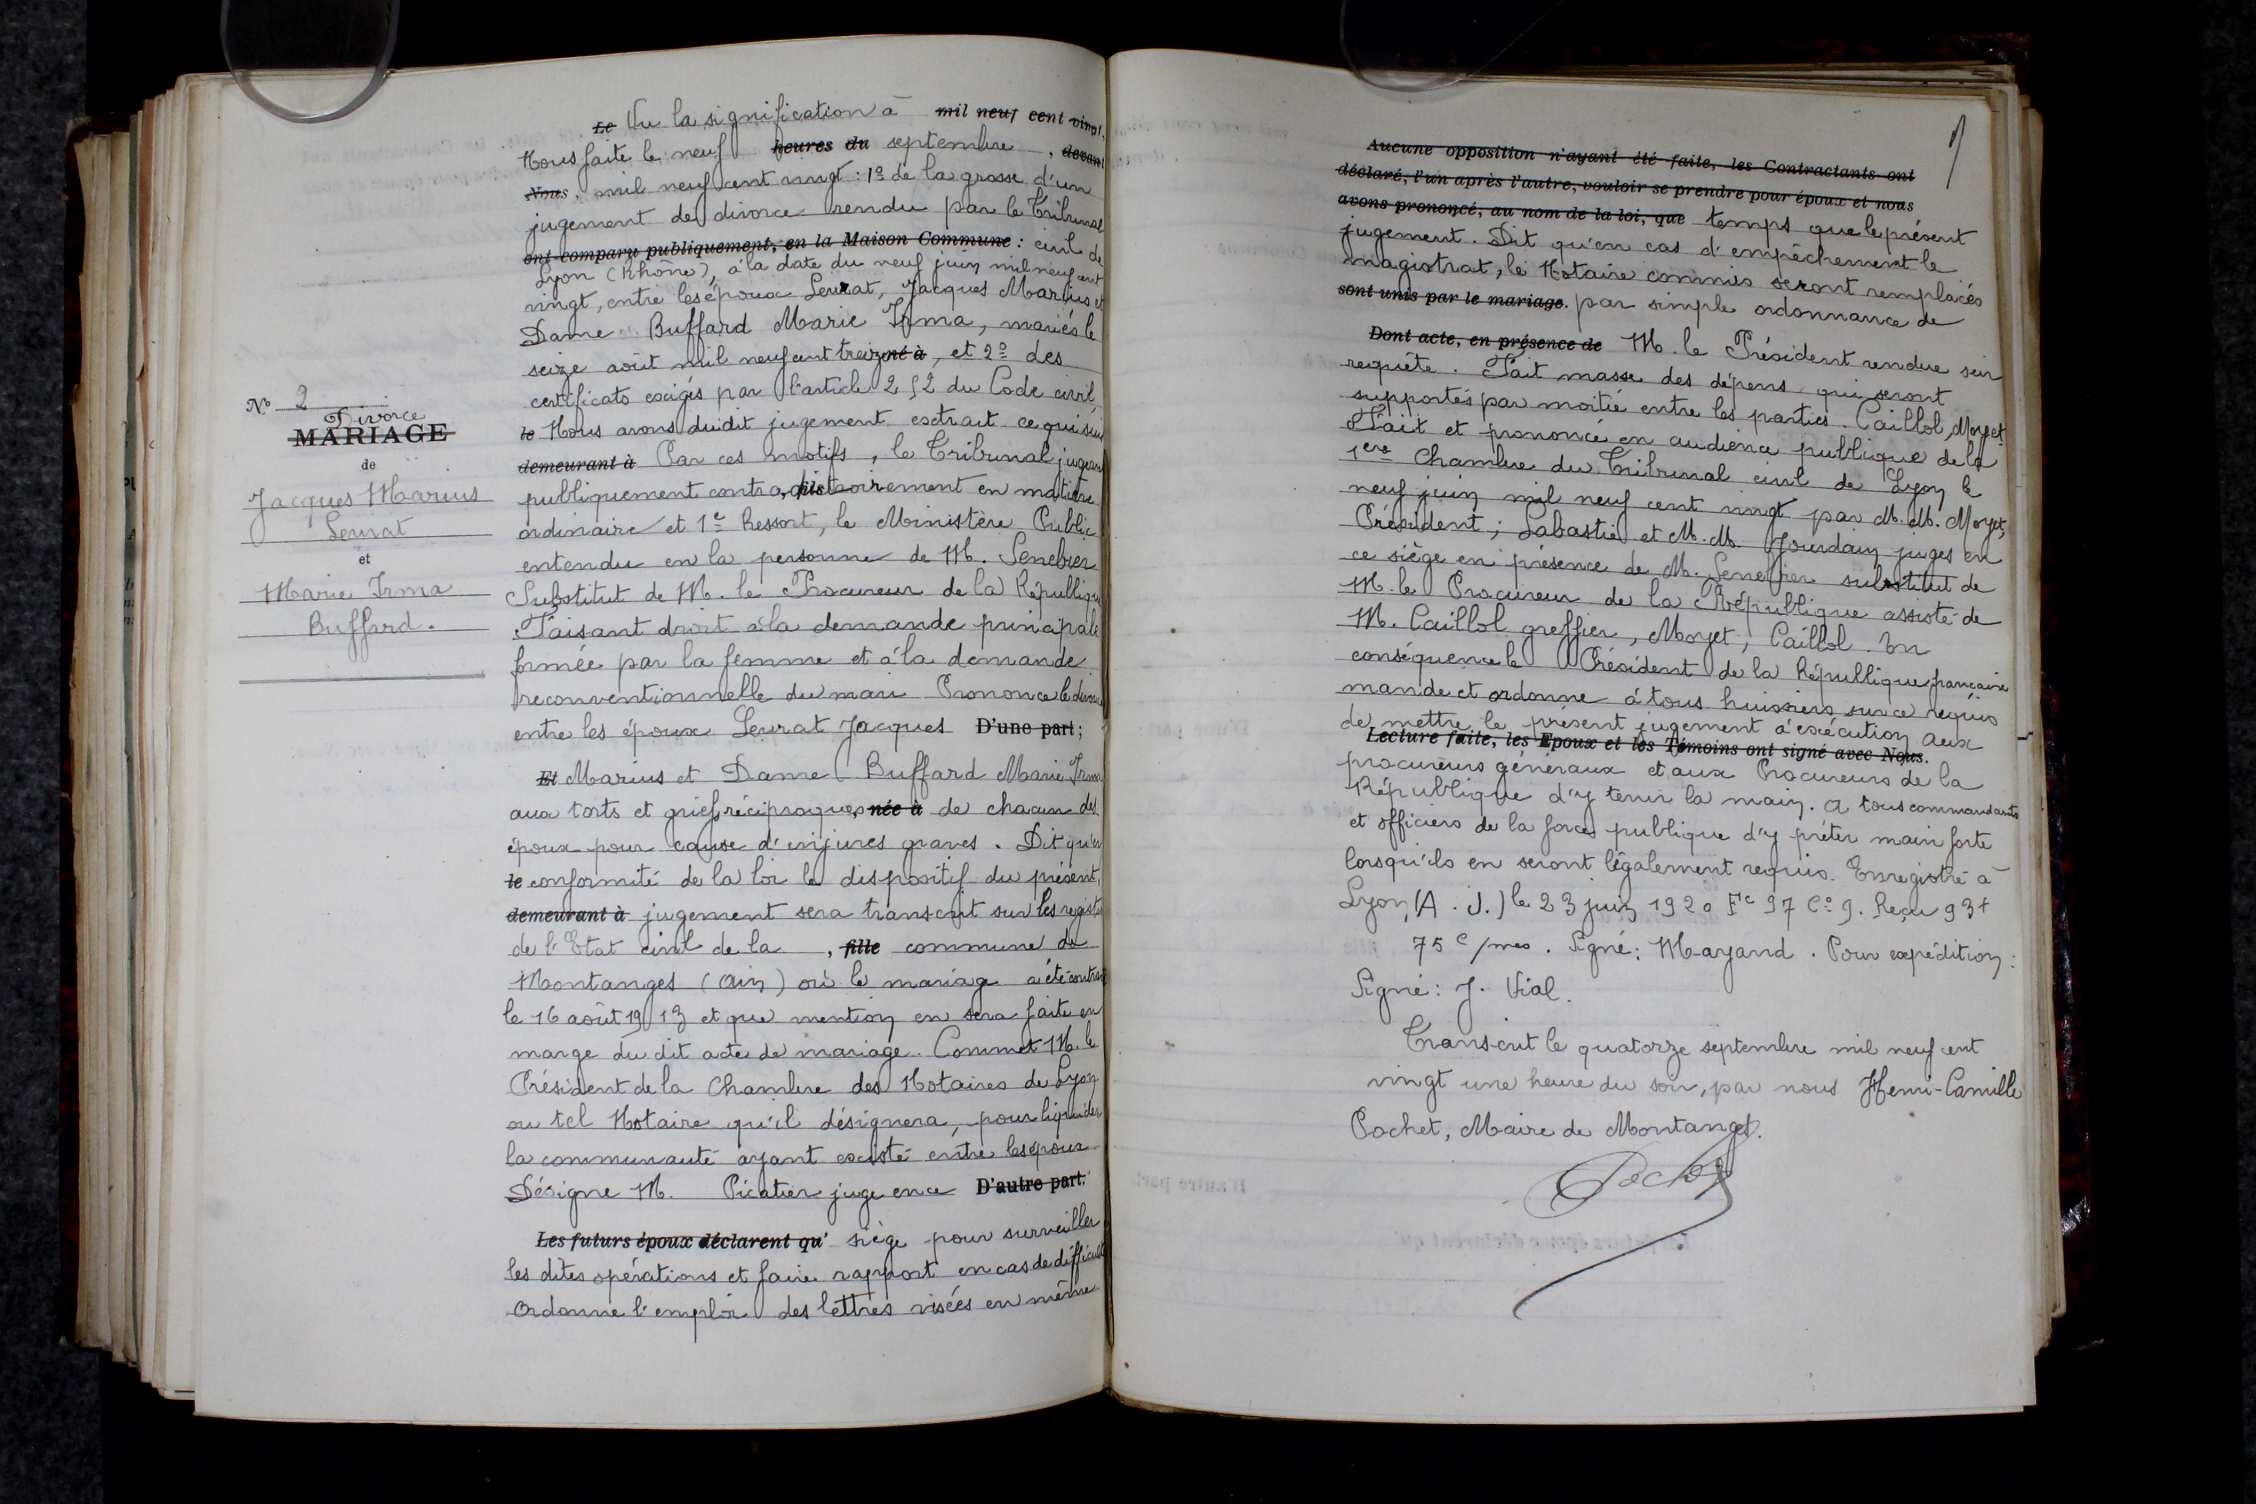 N° 2
Divorce
MARIAGE
de
Jacques Marius
Leurat
et
Marie Irma
Buffard.
Le Vu la signification à mil neuf cent vingt,
Nous faite le neuf heures du septembre, devant
Nous, mil neuf cent vingt : 1º de la grosse d'un
jugement de divorce rendu par le Tribunal
ont comparu publiquement, en la Maison Commune : civil de
Lyon (Rhône), à la date du neuf juin mil neuf cent
vingt, entre les époux Leurat, Jacques Marius et
Dame Buffard Marie Irma, mariés le
seize août mil neuf cent treize né à, et 2º des
certificats exigés par l'article 252 du Code civil
le Nous avons dudit jugement extrait ce qui suit
demeurant à Par ces motifs, le Tribunal jugeant
publiquement contradictoirement, fils en matière
ordinaire et 1er Ressort, le Ministère Public
entendu en la personne de M. Senebier
Substitut de M. le Procureur de la République
Faisant droit à la demande principale
formée par la femme et à la demande
reconventionnelle du mari Prononce le divorce
entre les époux Leurat Jacques D'une part;
Et Marius et Dame Buffard Marie Irma
aux torts et griefs réciproques, née à de chacun des
époux pour cause d'injures graves. Dit qu'en
le conformité de la loi le dispositif du présent
demeurant à jugement sera transcrit sur les registres
de l'Etat civil de la , fille commune de
Montanges (Ain) où le mariage a été contracté
le 16 août 1913 et que mention en sera faite en
marge du dit acte de mariage. Commet M. le
Président de la Chambre des Notaires de Lyon
ou tel Notaire qu'il désignera, pour liquider
la communauté ayant existé entre les époux
Désigne M. Picatier juge en ce D'autre part.
Les futurs époux déclarent qu' siège pour surveiller
les dites opérations et faire rapport en cas de difficultés
Ordonne l'emploi des lettres visées en même
Aucune opposition n'ayant été faite, les Contractants ont
déclaré, l'un après l'autre, vouloir se prendre pour époux et nous
avons prononcé, au nom de la loi, que temps que le présent
jugement. Dit qu'en cas d'empêchement le
magistrat, le Notaire commis seront remplacés
sont unis par le mariage. par simple ordonnance de
Dont acte, en présence de M. le Président rendue sur
requête. Fait masse des dépens qui seront
supportés par moitié entre les parties. Caillol, Moyet
Fait et prononcé en audience publique de la
1ère Chambre du Tribunal civil de Lyon le
neuf juin mil neuf cent vingt par M. M. Moyet,
Président; Labastie et M. M. Jourdain juges en
ce siège en présence de M. Senebier substitut de
M. le Procureur de la République assisté de
M. Caillol greffier, Moyet, Caillol. En
conséquence le Président de la République française
mande et ordonne à tous huissiers sur ce requis
de mettre le présent jugement à exécution aux
Lecture faite, les Epoux et les Témoins ont signé avec Nous.
procureurs généraux et aux Procureurs de la
République d'y tenir la main. A tous commandants
et officiers de la force publique d'y prêter main forte
lorsqu'ils en seront légalement requis. Enregistré à
Lyon, (A. J.) le 23 juin 1920 Fº 97 Cº 9. Reçu 93f
75 c/mes. Signé : Mayand. Pour expédition :
Signé : J. Vial.
Transcrit le quatorze septembre mil neuf cent
vingt une heure du soir, par nous Henri-Camille
Pochet, Maire de Montanges.
Pochet